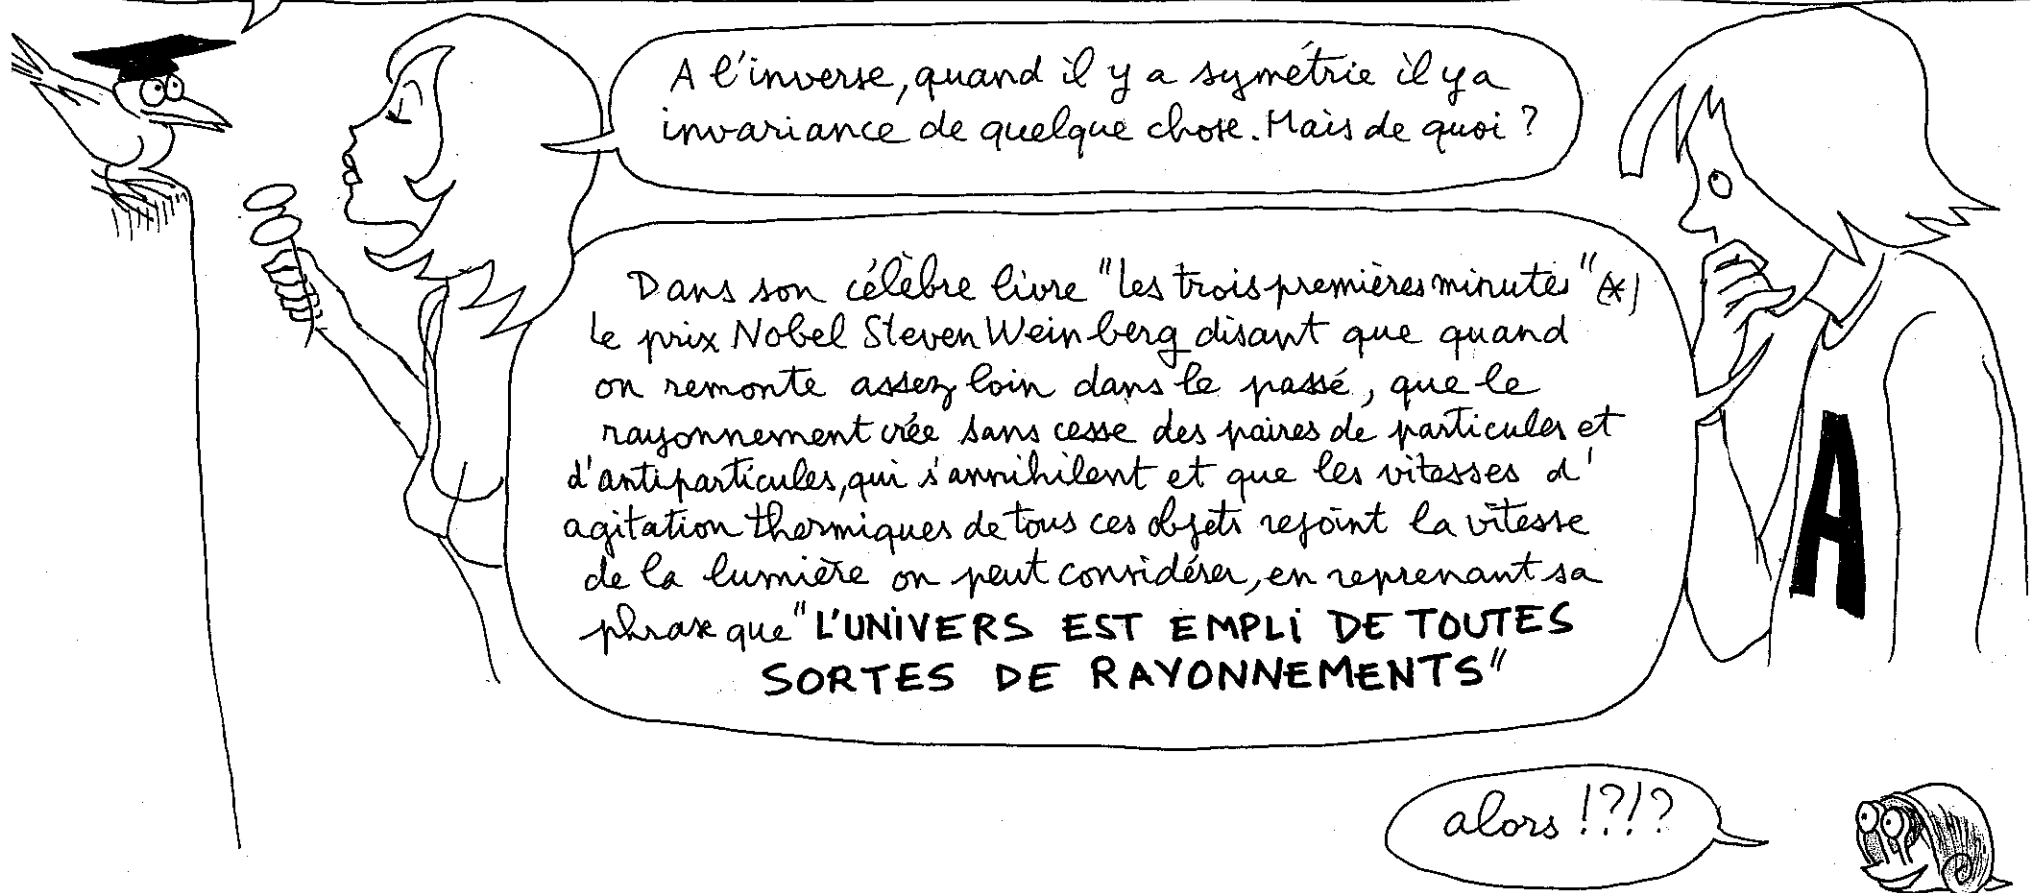 A l'inverse, quand il y a symétrie il y a
invariance de quelque chose. Mais de quoi ?
Dans son célèbre livre "Les trois premières minutes" (*)
le prix Nobel Steven Weinberg disant que quand
on remonte assez loin dans le passé, que le
rayonnement crée sans cesse des paires de particules et
d'antiparticules, qui s'annihilent et que les vitesses d'
agitation thermiques de tous ces objets rejoint la vitesse
de la lumière on peut considérer, en reprenant sa
phrase que "L'UNIVERS EST EMPLI DE TOUTES
SORTES DE RAYONNEMENTS"
A
alors !?!?